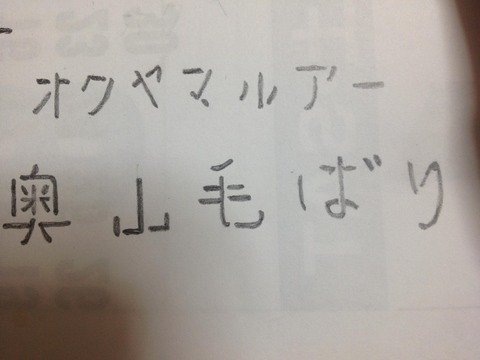 オクヤマルアー
奥山毛ばり